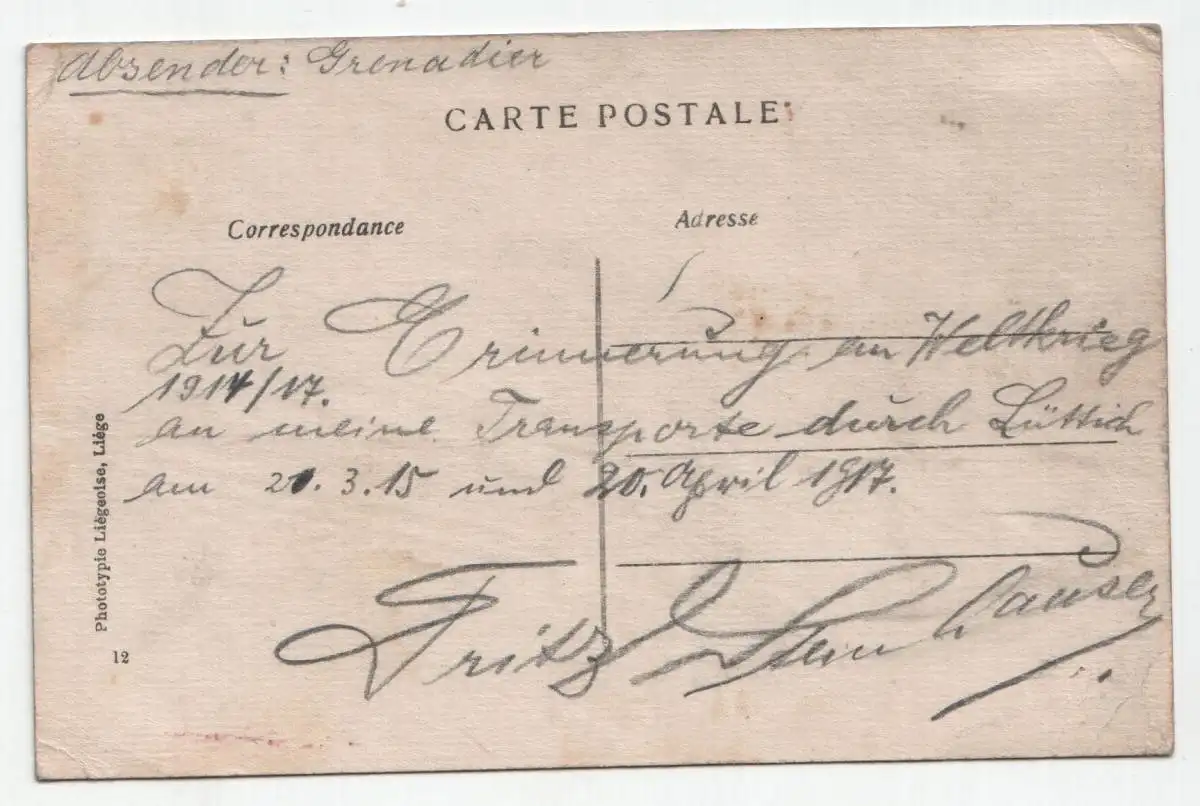 Absender: Grenadier
CARTE POSTALE
Correspondance
Adresse
Zur Erinnerung an Weltkrieg
1914/17.
an meine Transporte durch Lüttich
am 21.3.15 und 20. April 1917.
Fritz Steinhauser
Phototypie Liégeoise, Liége
12